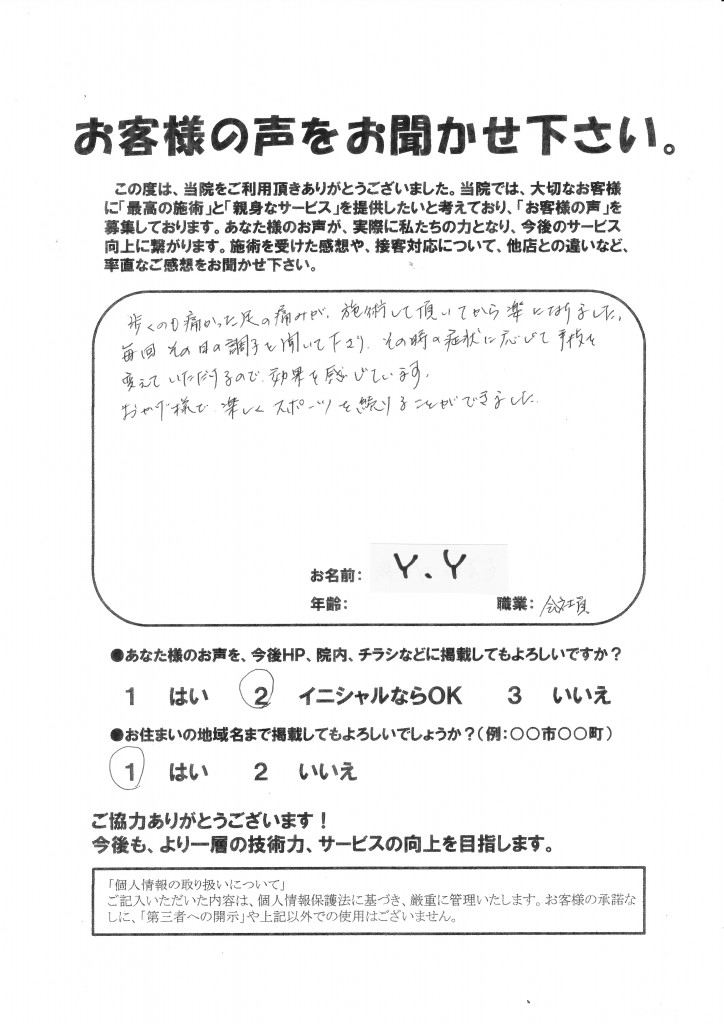 お客様の声をお聞かせ下さい。
この度は、当院をご利用頂きありがとうございました。当院では、大切なお客様
に「最高の施術」と「親身なサービス」を提供したいと考えており、「お客様の声」を
募集しております。あなた様のお声が、実際に私たちの力となり、今後のサービス
向上に繋がります。施術を受けた感想や、接客対応について、他店との違いなど、
率直なご感想をお聞かせ下さい。
歩くのも痛かった足の痛みが、施術して頂いてから楽になりました。
毎回その日の調子を聞いて下さり、その時の症状に応じて手技を
変えていただけるので、効果を感じています。
おかげ様で、楽しくスポーツを続けることができました。
お名前： Y.Y
年齢： 職業： 会社員
●あなた様のお声を、今後HP、院内、チラシなどに掲載してもよろしいですか？
1 はい 2 イニシャルならOK 3 いいえ
●お住まいの地域名まで掲載してもよろしいでしょうか？（例：〇〇市〇〇町）
1 はい 2 いいえ
ご協力ありがとうございます！
今後も、より一層の技術力、サービスの向上を目指します。
「個人情報の取り扱いについて」
ご記入いただいた内容は、個人情報保護法に基づき、厳重に管理いたします。お客様の承諾な
しに、「第三者への開示」や上記以外での使用はございません。